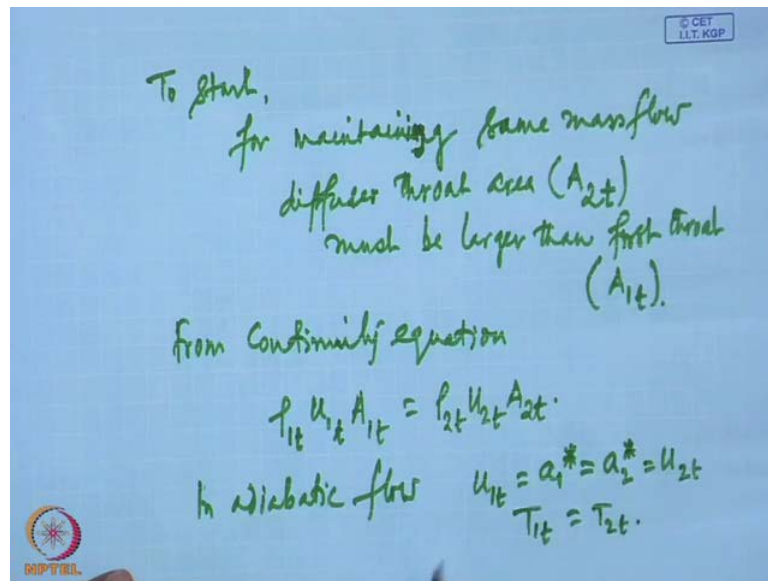 © CET
I.I.T. KGP
To start,
for maintaining same mass flow
diffuser throat area (A₂ₜ)
must be larger than first throat
(A₁ₜ).
From Continuity equation
ρ₁ₜ u₁ₜ A₁ₜ = ρ₂ₜ u₂ₜ A₂ₜ.
In adiabatic flow u₁ₜ = a₁* = a₂* = u₂ₜ
T₁ₜ = T₂ₜ.
NPTEL